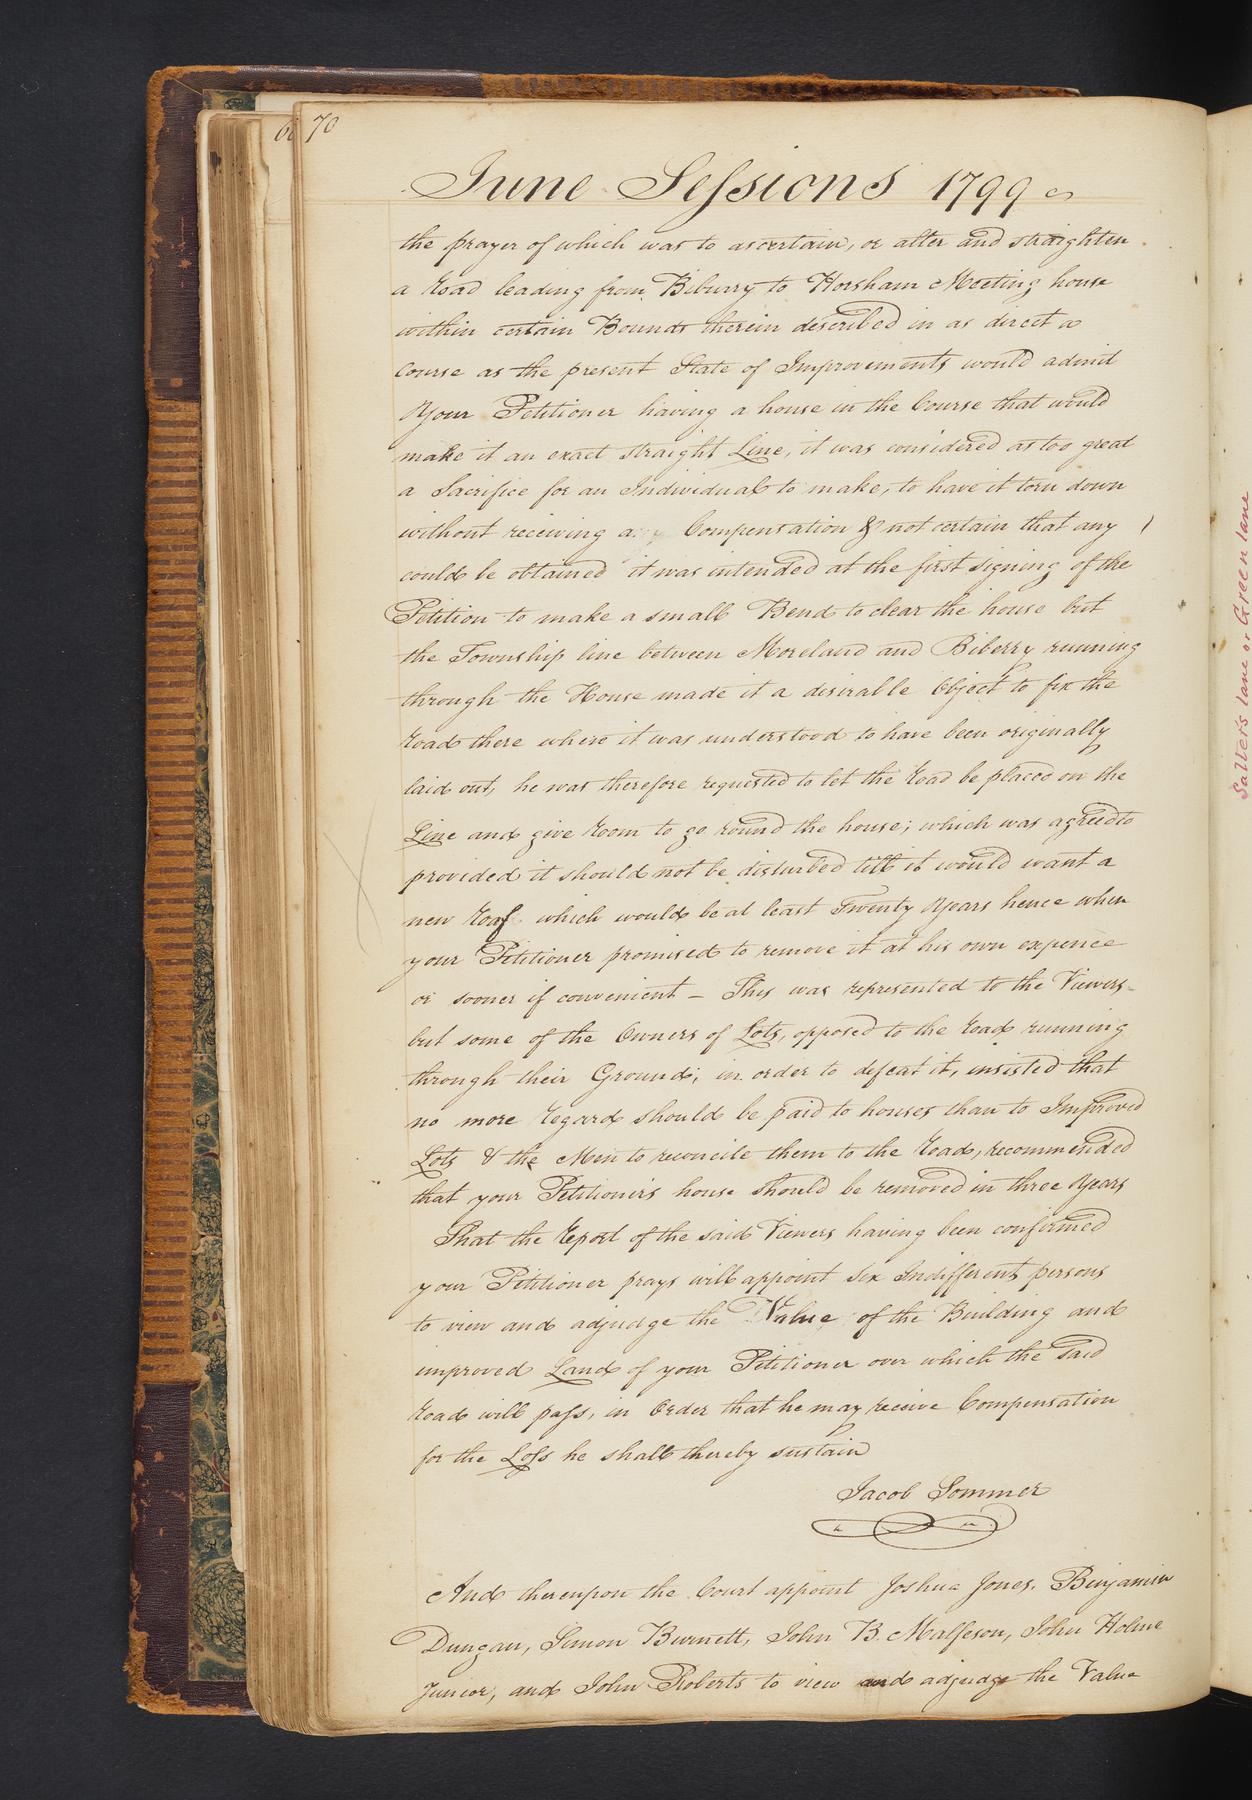 70
June Sessions 1799
the prayer of which was to ascertain, or alter and straighten
a Road leading from Biburry to Horsham Meeting house
within certain Bounds therein described in as direct a
Course as the present State of Improvements would admit
Your Petitioner having a house in the Course that would
make it an exact straight Line, it was considered as too great
a Sacrifice for an Individual to make, to have it torn down
without receiving a Compensation & not certain that any
could be obtained it was intended at the first signing of the
Petition to make a small Bend to clear the house but
the Township line between Moreland and Biberry running
through the House made it a desirable Object to fix the
Road there where it was understood to have been originally
laid out, he was therefore requested to let the Road be placed on the
Line and give Room to go round the house; which was agreed to
provided it should not be disturbed till it would want a
new Roof which would be at least Twenty Years hence when
your Petitioner promised to remove it at his own expence
or sooner if convenient – This was represented to the Viewers
but some of the Owners of Lots, opposed to the Road running
through their Ground; in order to defeat it, insisted that
no more Regard should be paid to houses than to Improved
Lots & the Men to reconcile them to the Road, recommended
that your Petitioner's house should be removed in three Years
That the Report of the said Viewers having been confirmed
your Petitioner prays will appoint six Indifferent persons
to view and adjudge the Value of the Building and
improved Land of your Petitioner over which the said
Road will pass, in Order that he may receive Compensation
for the Loss he shall thereby sustain
Jacob Sommer
And thereupon the Court appoint Joshua Jones, Benjamin
Dungan, Simon Burnett, John B. Malfeson, John Holme
Junior, and John Roberts to view and adjudge the Value
Salter's lane or Green lane